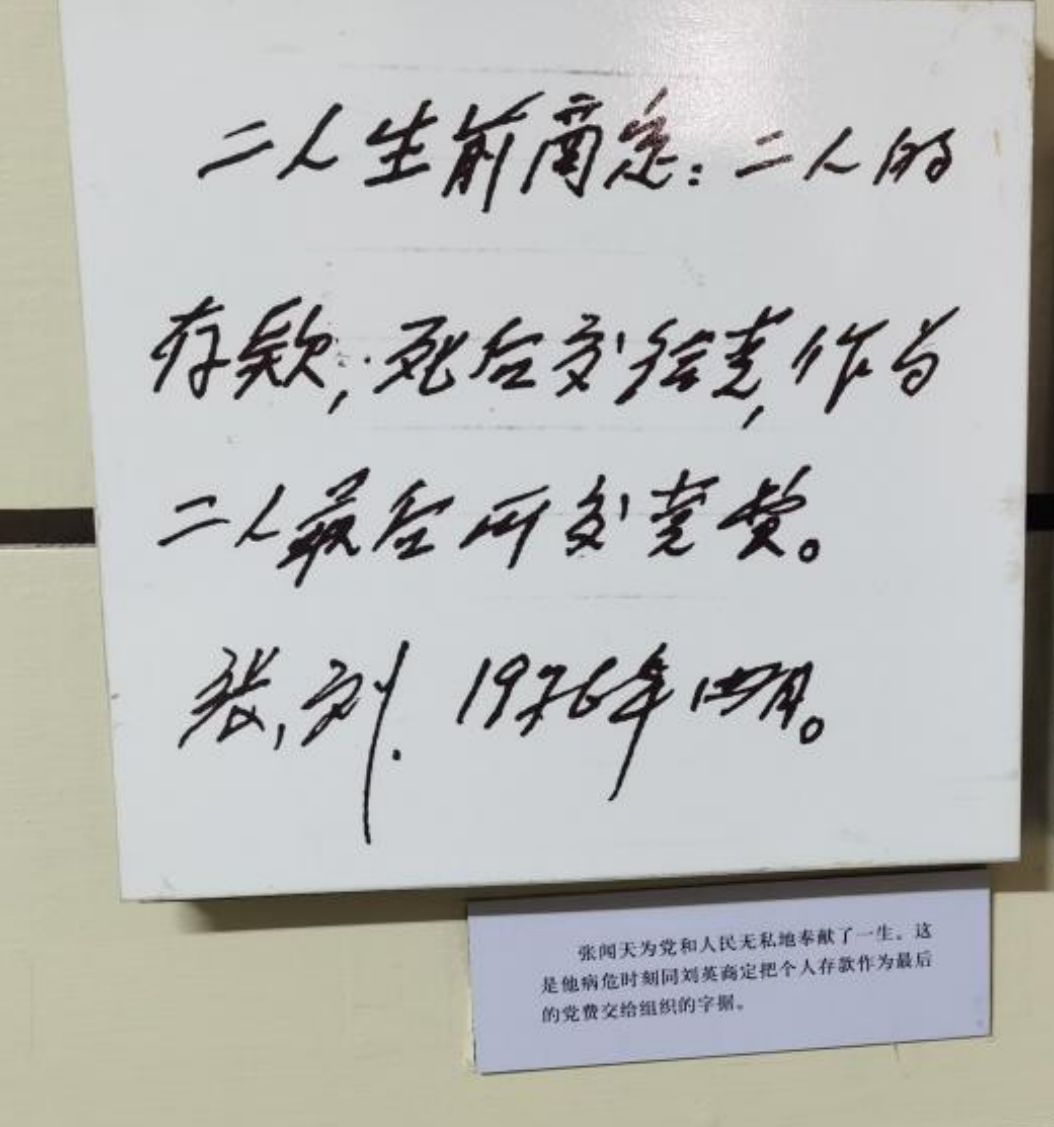 二人生前商定：二人的
存款，死后交给党，作为
二人最后所交党费。
张，刘．1976年四月。
张闻天为党和人民无私地奉献了一生。这
是他病危时刻同刘英商定把个人存款作为最后
的党费交给组织的字据。